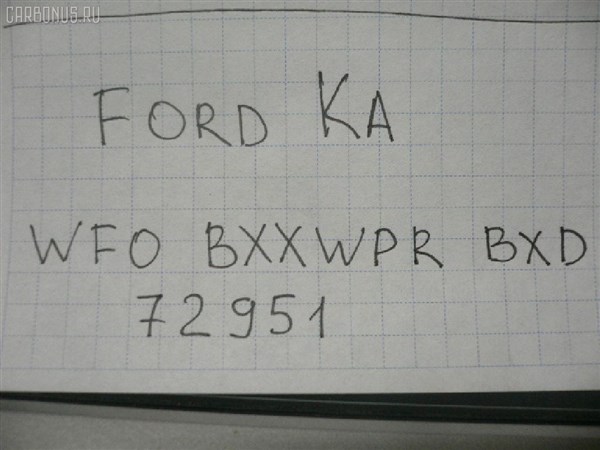 CARBONUS.RU
FORD KA
WFO BXXWPR BXD
72951